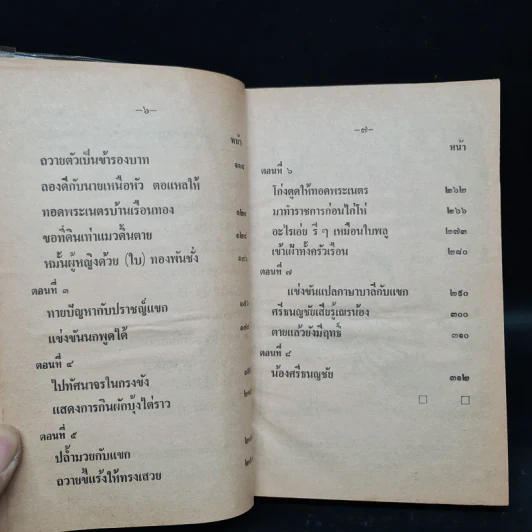 —๖—
หน้า
ถวายตัวเป็นข้ารองบาท
ลองดีกับนายเหนือหัว ตอแหลให้
ทอดพระเนตรบ้านเรือนทอง
ขอที่ดินเท่าแมวดิ้นตาย
หมั้นผู้หญิงด้วย (ใบ) ทองพันชั่ง
ตอนที่ ๓
ทายปัญหากับปราชญ์แขก
แข่งขันนกพูดได้
ตอนที่ ๔
ไปทัศนาจรในกรงขัง
แสดงการกินผักบุ้งไต่ราว
ตอนที่ ๕
ปล้ำมวยกับแขก
ถวายขี้แร้งให้ทรงเสวย
—๗—
หน้า
ตอนที่ ๖
โก่งตูดให้ทอดพระเนตร ๒๖๒
มาทำราชการก่อนไก่โห่ ๒๖๖
อะไรเอ่ย รี ๆ เหมือนใบพลู ๒๗๓
เข้าเฝ้าทั้งครัวเรือน ๒๘๐
ตอนที่ ๗
แข่งขันแปลภาษาบาลีกับแขก ๒๙๐
ศรีธนญชัยเสียรู้เณรน้อง ๓๐๐
ตายแล้วยังมีฤทธิ์ ๓๑๐
ตอนที่ ๘
น้องศรีธนญชัย ๓๑๒